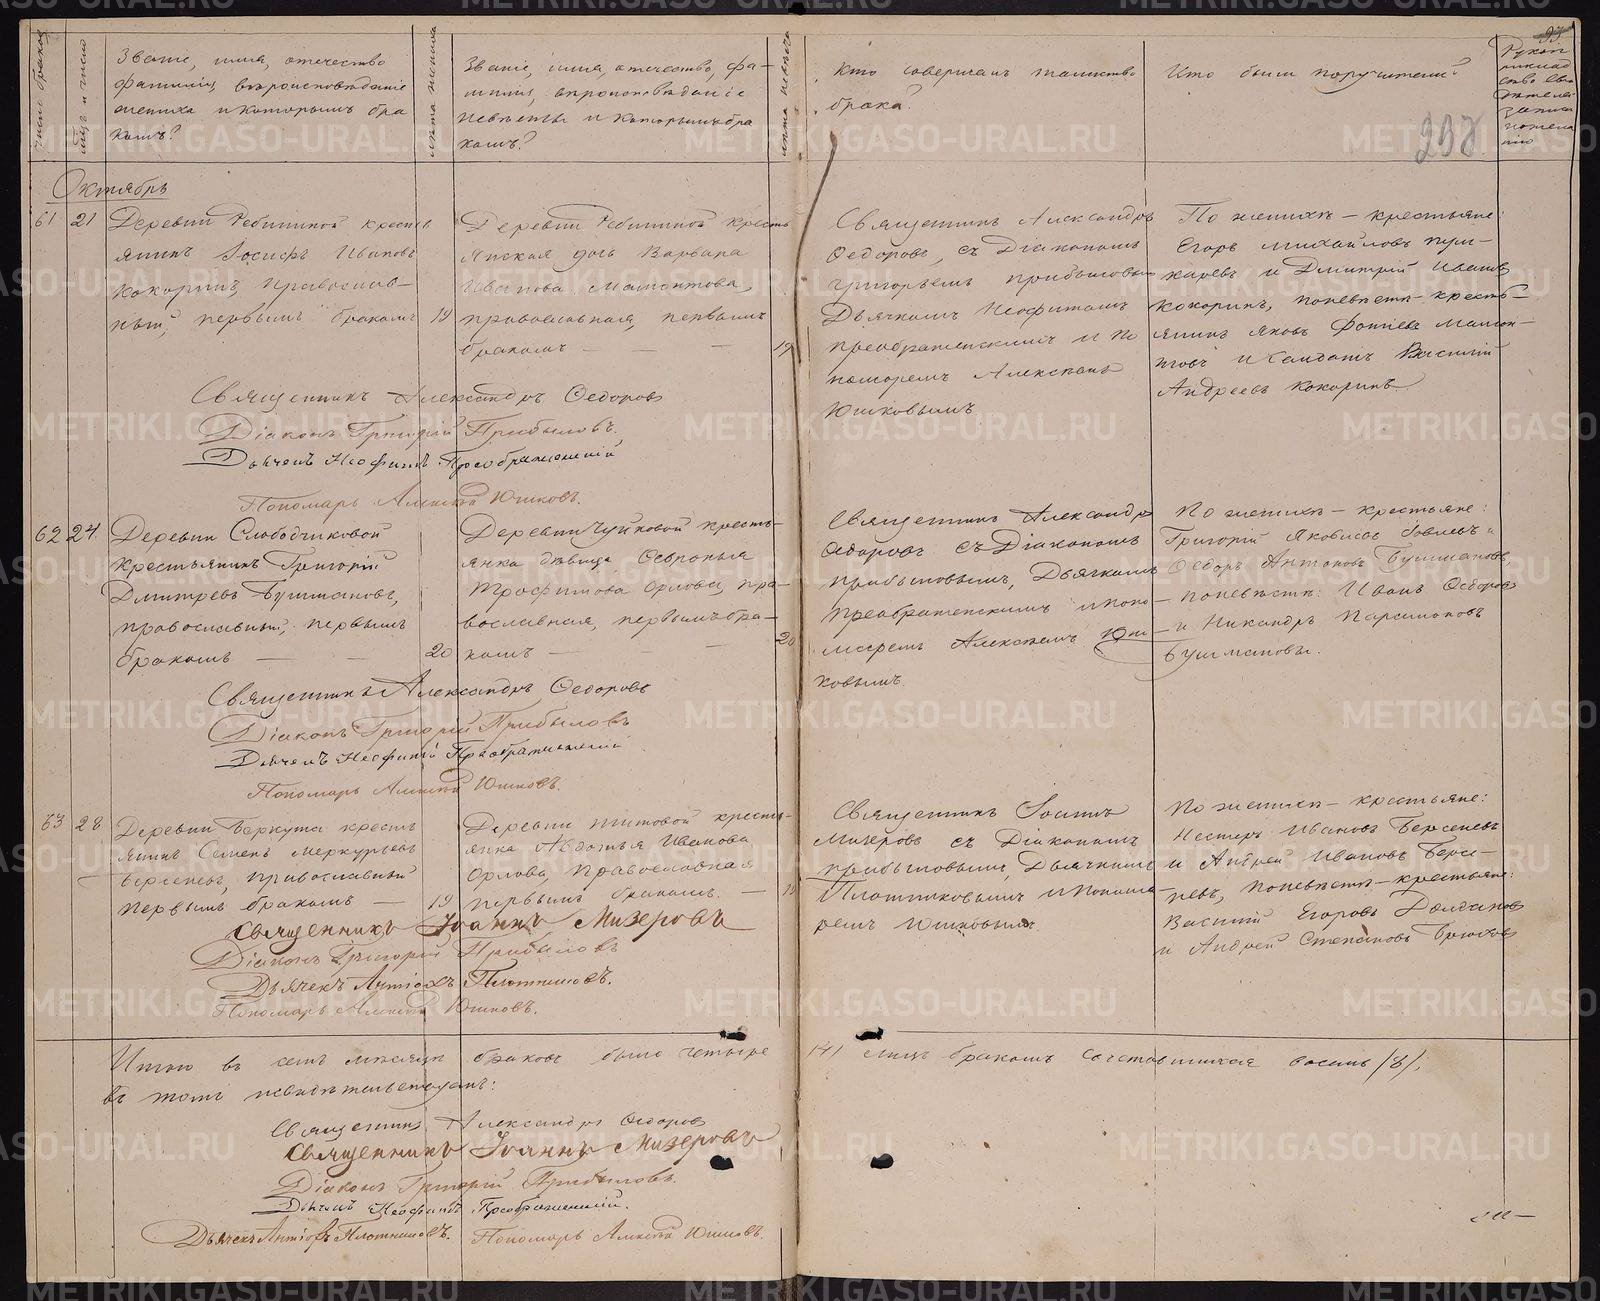 счетъ браковъ
мѣсяцъ и число
Званіе, имя, отечество
фамилія, вѣроисповѣданіе
жениха и которымъ бра
комъ?
лѣта жениха
Званіе, имя, отечество, фа-
милія, вѣроисповѣданіе
невѣсты и которымъ бра
комъ?
лѣта невѣсты
Кто совершалъ таинство
брака?
Кто были поручители?
93
Октябрь
61
21
Деревни кресть
янинъ Іосифъ Ивановъ
Кокоринъ, православ-
ный, первымъ бракомъ
19
Деревни кресть
янская дочь Варвара
Иванова Мамонтова,
православная, первымъ
бракомъ — — —
19
Священникъ Александръ
Ѳедоровъ, съ Діакономъ
Григорьемъ Прибыловымъ
Дьячкомъ Неофитомъ
Преображенскимъ и По
номаремъ Алексѣемъ
Юшковымъ.
По женихѣ — крестьяне:
Егоръ Михайловъ
и Дмитрій Ивановъ
Кокоринъ, по невѣстѣ — кресть-
янинъ Яковъ Фотіевъ Мамон-
товъ и Солдатъ Василій
Андреевъ Кокоринъ.
Священникъ Александръ Ѳедоровъ
Діаконъ Григорій Прибыловъ.
Дьячекъ Неофитъ Преображенскій
Пономарь Алексѣй Юшковъ.
62
24
Деревни Слободчиковой
крестьянинъ Григорій
Дмитревъ Бушмановъ,
православный, первымъ
бракомъ — —
20
Деревни Чуйковой кресть-
янка дѣвица Ѳевронья
Трофимова Орлова, пра-
вославная, первымъ бра-
комъ — — —
20
Священникъ Александръ
Ѳедоровъ съ Діакономъ
Прибыловымъ, Дьячкомъ
Преображенскимъ и поно-
маремъ Алексѣемъ Юш-
ковымъ.
По женихѣ — крестьяне:
Григорій Яковлевъ и
Ѳедоръ Антоновъ Бушмановъ,
по невѣстѣ: Иванъ Ѳедоровъ
и Никандръ Парамоновъ
Бушмановы.
Священникъ Александръ Ѳедоровъ
Діаконъ Григорій Прибыловъ
Дьячекъ Неофитъ Преображенскій
Пономарь Алексѣй Юшковъ.
63
28
Деревни Беркута кресть
янинъ Семенъ Меркурьевъ
Берсеневъ, православный
первымъ бракомъ —
19
Деревни Титовой кресть-
янка Авдотья Иванова
Орлова, православная
первымъ бракомъ. —
19
Священникъ Іоаннъ
Мизеровъ съ Діакономъ
Прибыловымъ, Дьячкомъ
Плотниковымъ и Понома-
ремъ Юшковымъ.
По женихѣ — крестьяне:
Нестеръ Ивановъ Берсеневъ
и Андрей Ивановъ Берсе-
невъ, по невѣстѣ — крестьяне:
Василій Егоровъ Долгановъ
и Андрей Степановъ Брюховъ
Священникъ Іоаннъ Мизеровъ
Діаконъ Григорій Прибыловъ
Дьячекъ Антіохъ Плотниковъ.
Пономарь Алексѣй Юшковъ.
Итого въ семъ мѣсяцѣ браковъ было четыре /4/ лицъ бракомъ сочетавшихся восемь /8/.
въ томъ и свидѣтельствуемъ:
Священникъ Александръ Ѳедоровъ
Священникъ Іоаннъ Мизеровъ
Діаконъ Григорій Прибыловъ.
Дьячекъ Неофитъ Преображенскій.
Дьячекъ Антіохъ Плотниковъ. Пономарь Алексѣй Юшковъ.
METRIKI.GASO-URAL.RU